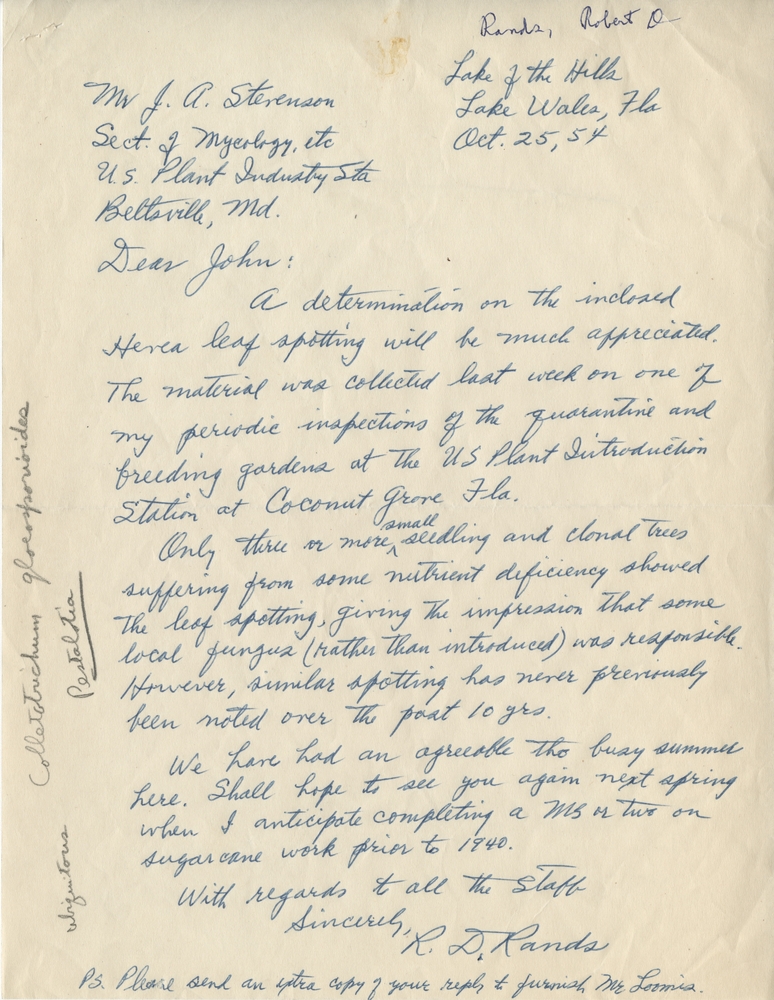 Rands, Robert D
Lake of the Hills
Lake Wales, Fla
Oct. 25, 54
Mr J. A. Stevenson
Sect. of Mycology, etc
U.S. Plant Industry Sta
Beltsville, Md.
Dear John:
A determination on the inclosed
Hevea leaf spotting will be much appreciated.
The material was collected last week on one of
my periodic inspections of the quarantine and
breeding gardens at the US Plant Introduction
Station at Coconut Grove Fla.
Only three or more small seedling and clonal trees
suffering from some nutrient deficiency showed
the leaf spotting, giving the impression that some
local fungus (rather than introduced) was responsible.
However, similar spotting has never previously
been noted over the past 10 yrs.
We have had an agreeable tho busy summer
here. Shall hope to see you again next spring
when I anticipate completing a MS or two on
sugarcane work prior to 1940.
With regards to all the Staff
Sincerely,
R. D. Rands
PS. Please send an extra copy of your reply to furnish Mr Loomis.
Colletotrichum gloeosporioides
Pestalotia
ubiquitous